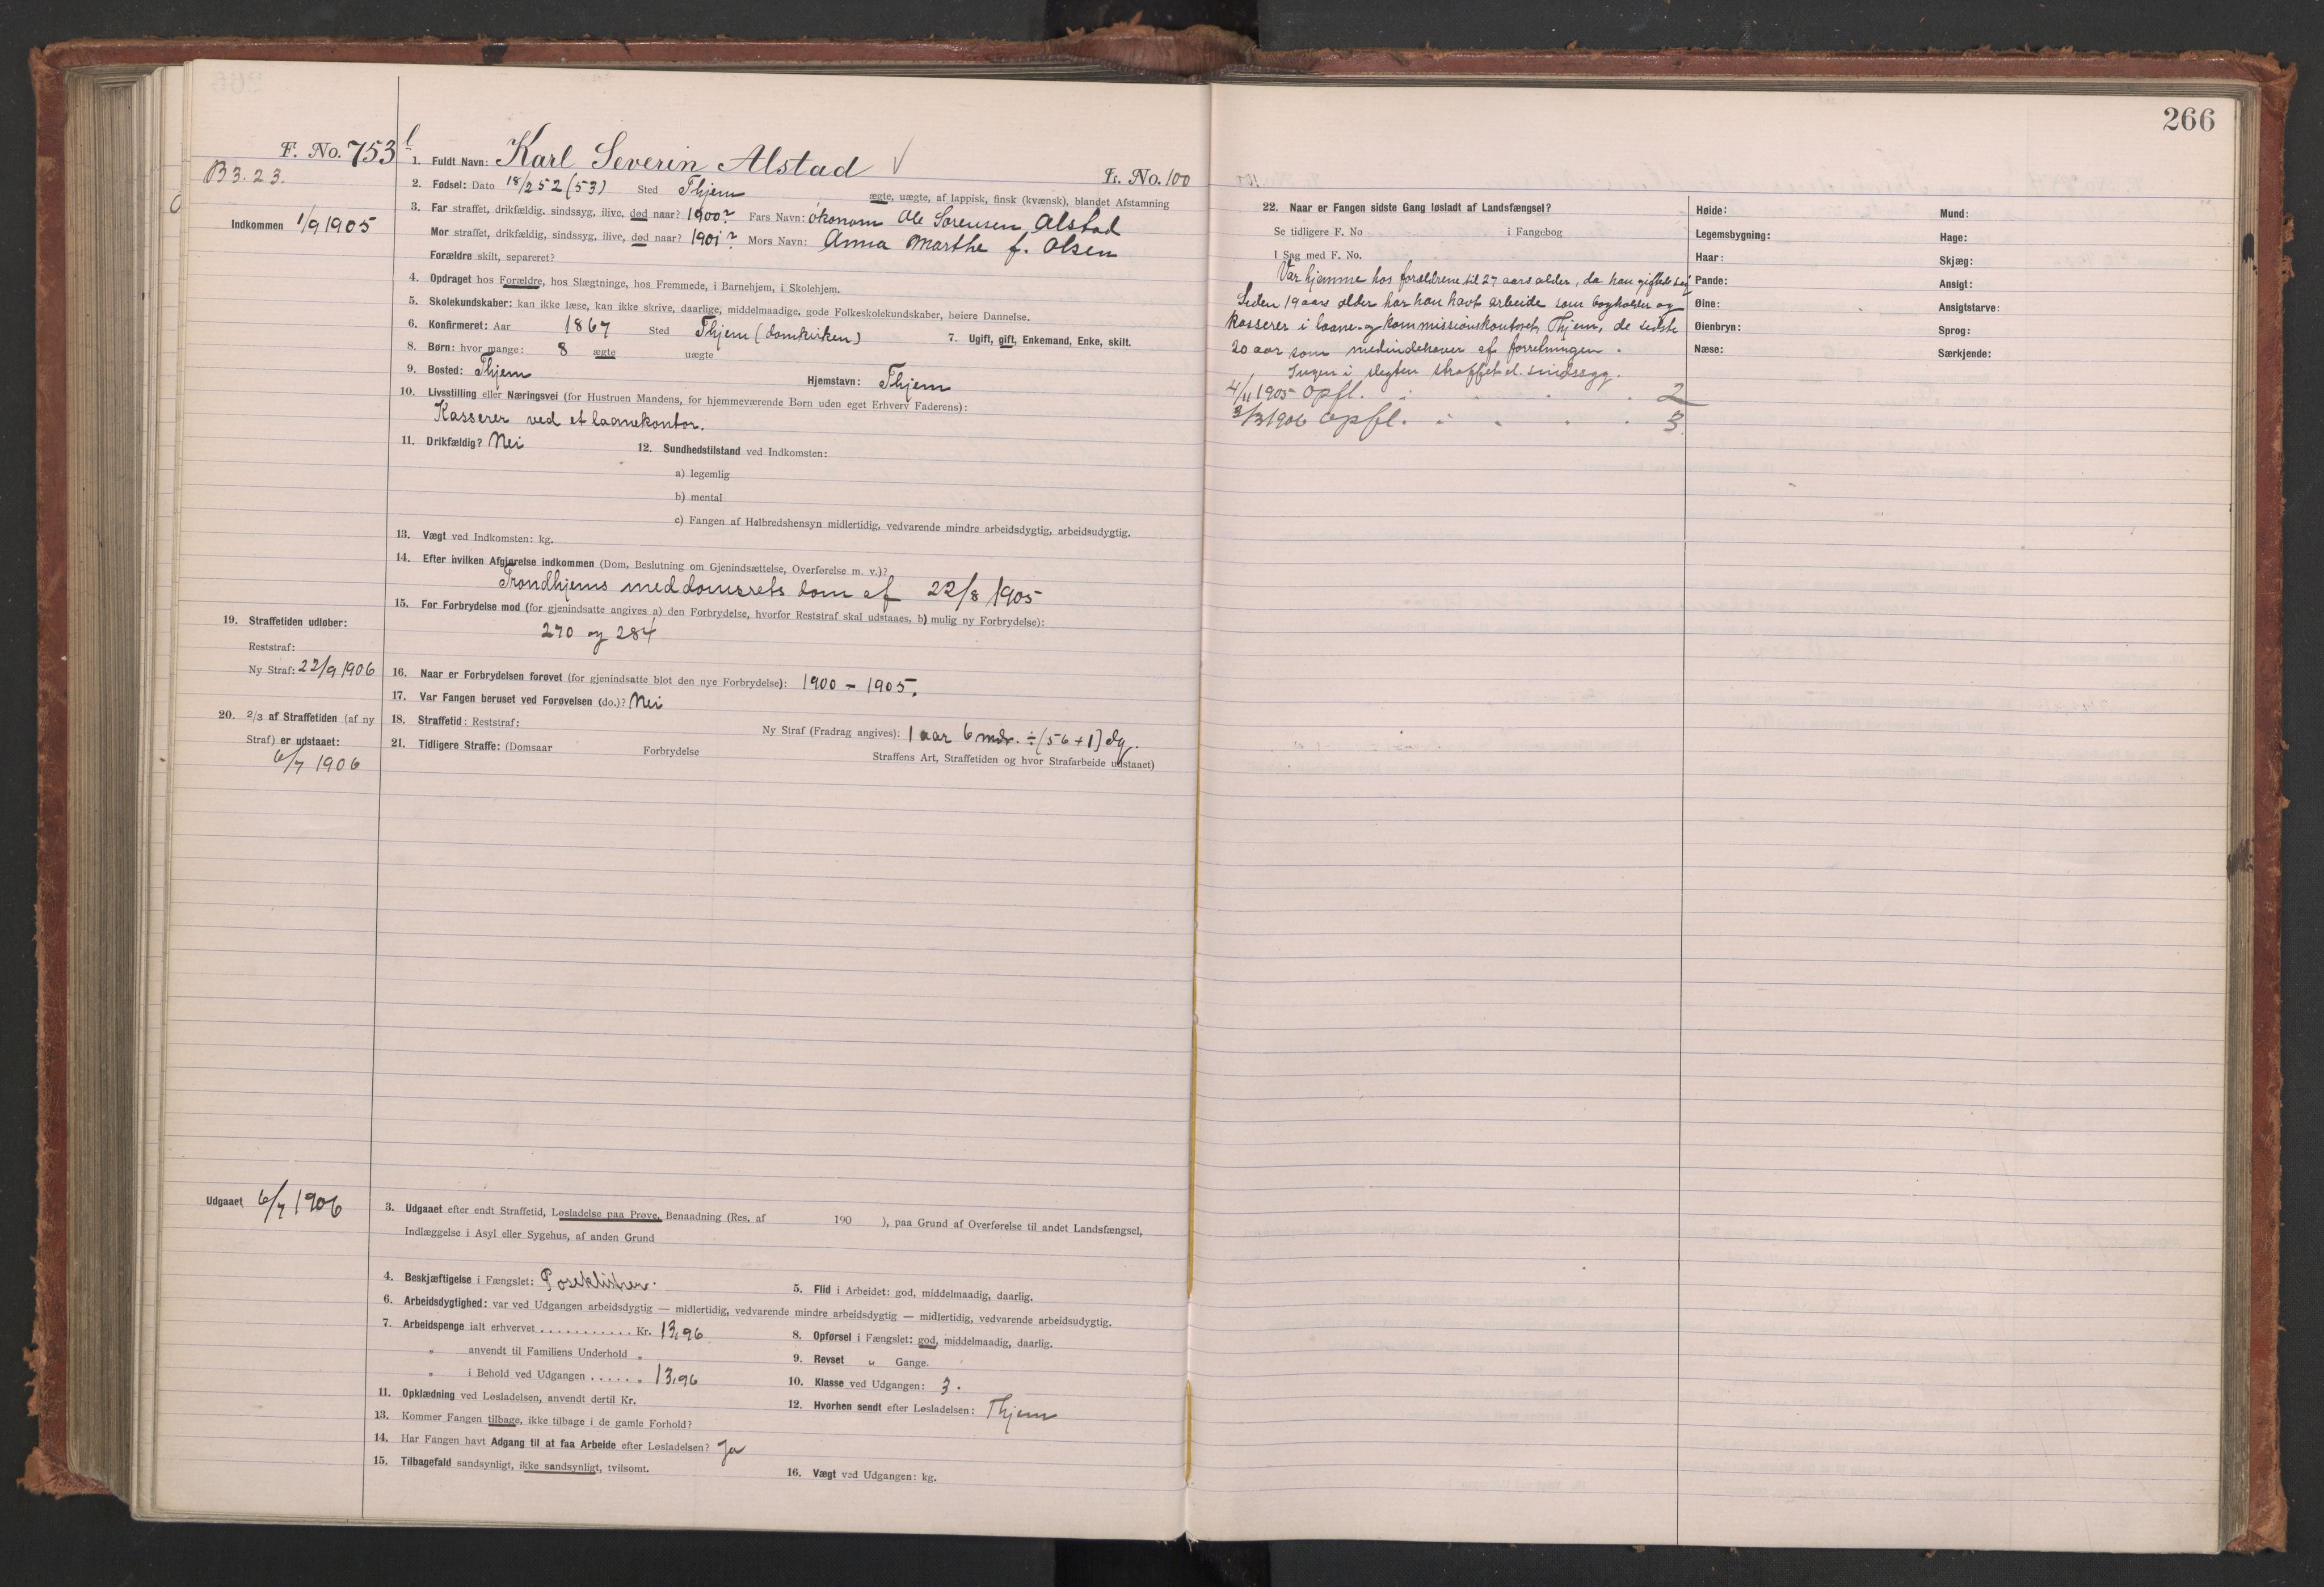 266
F. No. 753
B 3. 23.
Indkommen 1/9 1905
1. Fuldt Navn: Karl Severin Alstad √
Fr. No. 100
2. Fødsel: Dato 18/2 52 (53) Sted Thjem
ægte, uægte, af lappisk, finsk (kvænsk), blandet Afstamning
3. Far straffet, drikfældig, sindssyg, ilive, død naar? 1900? Fars Navn: økonom Ole Sørensen Alstad
Mor straffet, drikfældig, sindssyg, ilive, død naar? 1901? Mors Navn: Anna Marthe f. Olsen
Forældre skilt, separeret?
4. Opdraget hos Forældre, hos Slægtninge, hos Fremmede, i Barnehjem, i Skolehjem.
5. Skolekundskaber: kan ikke læse, kan ikke skrive, daarlige, middelmaadige, gode Folkeskolekundskaber, høiere Dannelse.
6. Konfirmeret: Aar 1867 Sted Thjem (domkirken) 7. Ugift, gift, Enkemand, Enke, skilt.
8. Børn: hvor mange: 8 ægte uægte
9. Bosted: Thjem Hjemstavn: Thjem
10. Livsstilling eller Næringsvei (for Hustruen Mandens, for hjemmeværende Børn uden eget Erhverv Faderens):
Kasserer ved et laanekontor.
11. Drikfældig? Nei 12. Sundhedstilstand ved Indkomsten:
a) legemlig
b) mental
c) Fangen af Helbredshensyn midlertidig, vedvarende mindre arbeidsdygtig, arbeidsudygtig.
13. Vægt ved Indkomsten: kg.
14. Efter hvilken Afgjørelse indkommen (Dom, Beslutning om Gjenindsættelse, Overførelse m. v.)?
Trondhjems meddomsrets dom af 22/8 1905
15. For Forbrydelse mod (for gjenindsatte angives a) den Forbrydelse, hvorfor Reststraf skal udstaaes, b) mulig ny Forbrydelse):
270 og 284
16. Naar er Forbrydelsen forøvet (for gjenindsatte blot den nye Forbrydelse): 1900 – 1905.
17. Var Fangen beruset ved Forøvelsen (do.)? Nei
18. Straffetid: Reststraf: Ny Straf (Fradrag angives): 1 aar 6 mdr. ÷ (56 + 1) dg.
19. Straffetiden udløber:
Reststraf:
Ny Straf: 22/9 1906
20. 2/3 af Straffetiden (af ny
Straf) er udstaaet:
6/7 1906
21. Tidligere Straffe: (Domsaar Forbrydelse Straffens Art, Straffetiden og hvor Strafarbeide udstaaet)
Udgaaet 6/7 1906
3. Udgaaet efter endt Straffetid, Løsladelse paa Prøve, Benaadning (Res. af 190 ), paa Grund af Overførelse til andet Landsfængsel,
Indlæggelse i Asyl eller Sygehus, af anden Grund
4. Beskjæftigelse i Fængslet: Poseklistrer. 5. Flid i Arbeidet: god, middelmaadig, daarlig.
6. Arbeidsdygtighed: var ved Udgangen arbeidsdygtig — midlertidig, vedvarende mindre arbeidsdygtig — midlertidig, vedvarende arbeidsudygtig.
7. Arbeidspenge ialt erhvervet . . . . . . . . . . . Kr. 13,96 8. Opførsel i Fængslet: god, middelmaadig, daarlig.
„ anvendt til Familiens Underhold „ 9. Revset „ Gange.
„ i Behold ved Udgangen . . . . . „ 13,96 10. Klasse ved Udgangen: 3.
11. Opklædning ved Løsladelsen, anvendt dertil Kr. 12. Hvorhen sendt efter Løsladelsen: Thjem
13. Kommer Fangen tilbage, ikke tilbage i de gamle Forhold?
14. Har Fangen havt Adgang til at faa Arbeide efter Løsladelsen? Ja
15. Tilbagefald sandsynligt, ikke sandsynligt, tvilsomt. 16. Vægt ved Udgangen: kg.
22. Naar er Fangen sidste Gang løsladt af Landsfængsel?
Se tidligere F. No i Fangebog
I Sag med F. No.
Var hjemme hos forældrene til 27 aars alder, da han giftede sig
Siden 19 aars alder har han havt arbeide som bogholder og
kasserer i laane- og kommissionskontoret, Thjem, de sidste
20 aar som medindehaver af forretningen.
Ingen i slegten straffet el. sindssyg.
4/11 1905 opfl. . . . . 2
3/3 1906 opfl. . . . . 3.
Høide: Mund:
Legemsbygning: Hage:
Haar: Skjæg:
Pande: Ansigt:
Øine: Ansigtstarve:
Øienbryn: Sprog:
Næse: Særkjende: